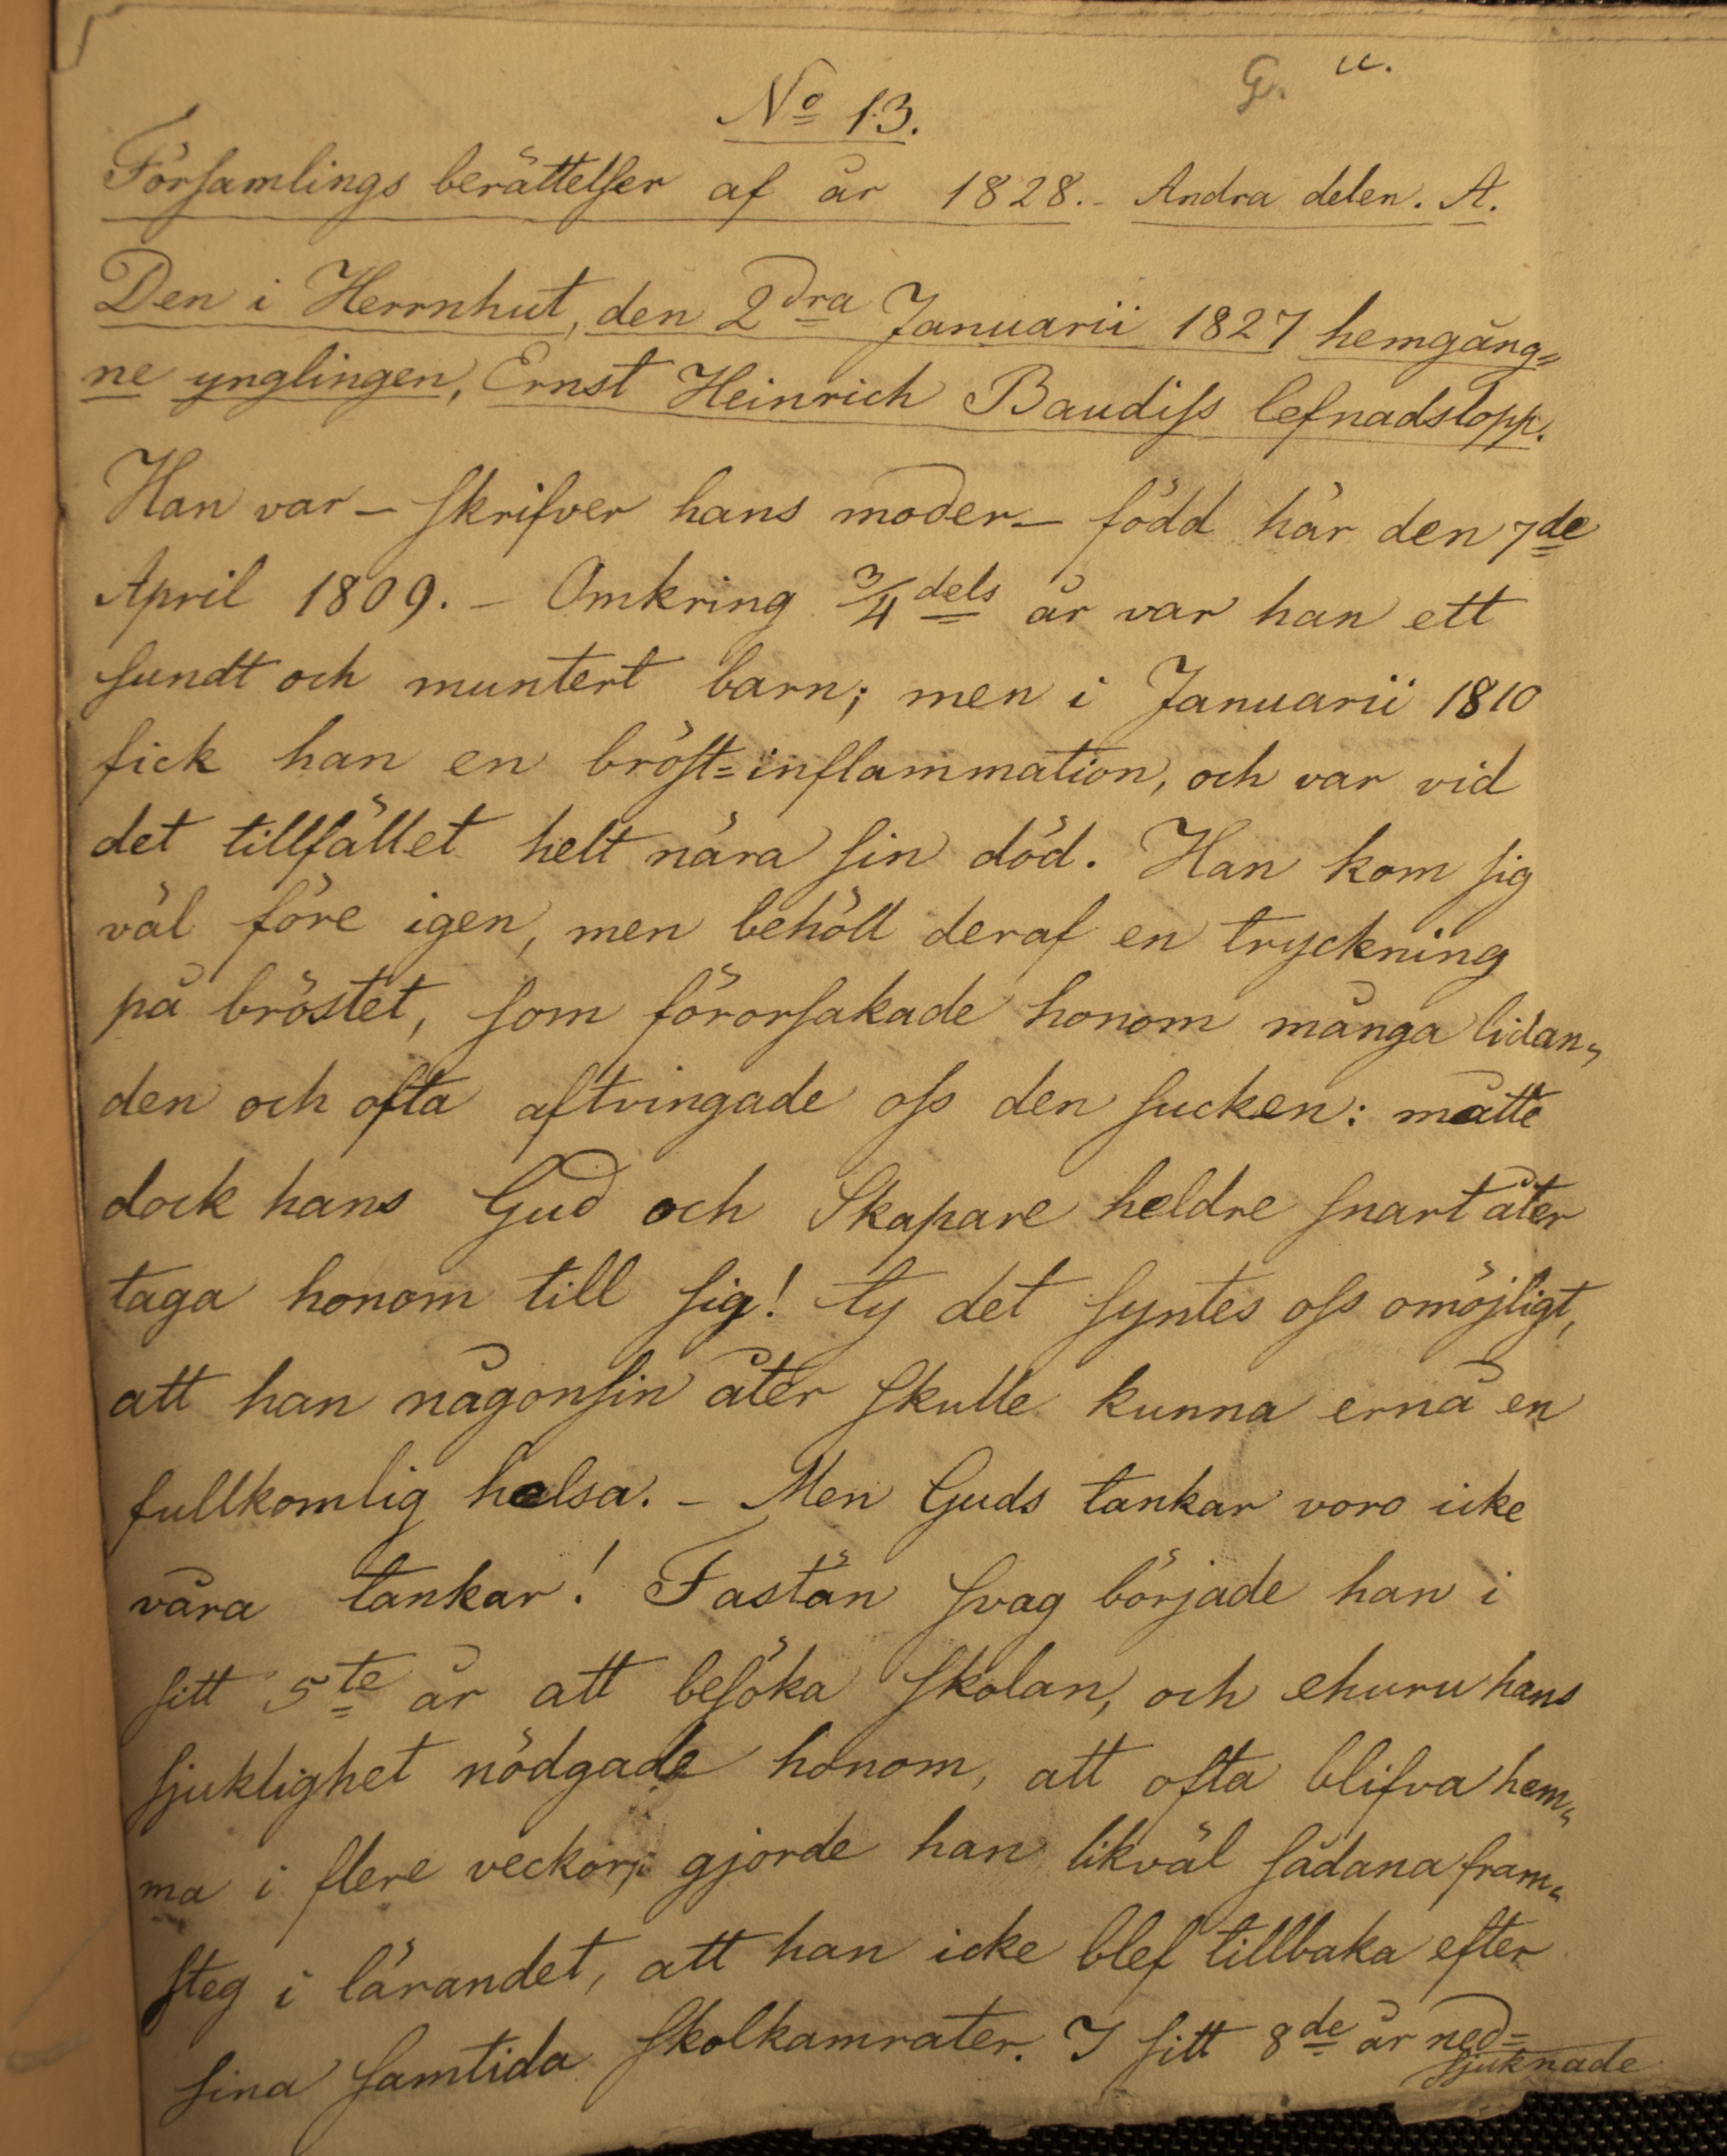 G. u.
No 13.
Församlings berättelser af år 1828.- Andra delen. A.
Den i Herrnhut, den 2dra Januarii 1827 hemgång=
ne ynglingen, Ernst Heinrich Baudiss lefnadslopp.
Han var – skrifver hans moder – född här den 7de
April 1809. – Omkring 3/4dels år var han ett
sundt och muntert barn; men i Januarii 1810
fick han en bröst=inflammation, och var vid
det tillfället helt nära sin död. Han kom sig
väl före igen, men behöll deraf en tryckning
på bröstet, som förorsakade honom många lidan„
den och ofta aftvingade oss den sucken: måtte
dock hans Gud och Skapare heldre snart åter
taga honom till sig! ty det syntes oss omöjligt,
att han någonsin åter skulle kunna ernå en
fullkomlig helsa. – Men Guds tankar voro icke
våra tankar! Fastän svag började han i
sitt 5te år att besöka skolan, och ehuru hans
sjuklighet nödgade honom, att ofta blifva hem„
ma i flere veckor, gjorde han likväl sådana fram„
steg i lärandet, att han icke blef tillbaka efter
sina samtida skolkamrater. I sitt 8de år ned=
sjuknade